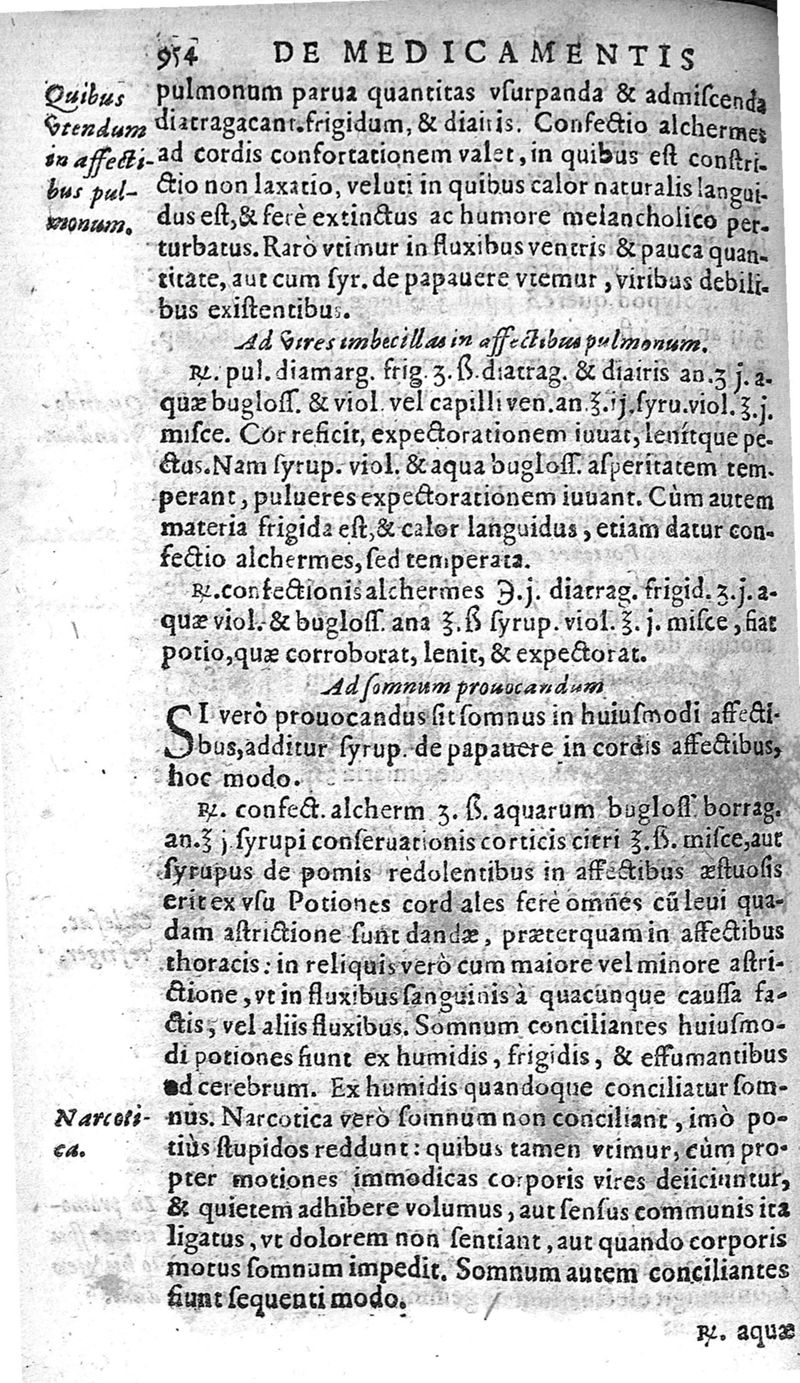 954 DE MEDICAMENTIS
Quibus
vtendum
in affecti-
bus pul-
monum.
pulmonum parua quantitas vſurpanda & admiſcenda
diatragacant.frigidum, & diairis. Confectio alchermes
ad cordis confortationem valet, in quibus eſt conſtri-
ctio non laxatio, veluti in quibus calor naturalis langui-
dus eſt,& ferè extinctus ac humore melancholico per-
turbatus. Rarò vtimur in fluxibus ventris & pauca quan-
titate, aut cum ſyr. de papauere vtemur, viribus debili-
bus exiſtentibus.
Ad vires imbecillas in affectibus pulmonum.
℞. pul. diamarg. frig. ʒ. ß. diatrag. & diairis an. ʒ j. a-
quæ bugloſſ. & viol. vel capilli ven. an. ℥. ij. ſyru. viol. ℥. j.
miſce. Cor reficit, expectorationem iuuat, lenítque pe-
ctus. Nam ſyrup. viol. & aqua bugloſſ. aſperitatem tem-
perant, pulueres expectorationem iuuant. Cùm autem
materia frigida eſt,& calor languidus, etiam datur con-
fectio alchermes, ſed temperata.
℞. confectionis alchermes ℈. j. diatrag. frigid. ʒ. j. a-
quæ viol. & bugloſſ. ana ℥. ß ſyrup. viol. ℥. j. miſce, fiat
potio, quæ corroborat, lenit, & expectorat.
Ad ſomnum prouocandum
SI verò prouocandus ſit ſomnus in huiuſmodi affecti-
bus, additur ſyrup. de papauere in cordis affectibus,
hoc modo.
℞. confect. alcherm ʒ. ß. aquarum bugloſſ borrag.
an. ℥ j ſyrupi conſeruationis corticis citri ℥. ß. miſce, aut
ſyrupus de pomis redolentibus in affectibus æſtuoſis
erit ex vſu Potiones cord ales ferè omnes cũ leui qua-
dam aſtrictione ſunt dandæ, præterquam in affectibus
thoracis: in reliquis verò cum maiore vel minore aſtri-
ctione, vt in fluxibus ſanguinis à quacunque cauſſa fa-
ctis, vel aliis fluxibus. Somnum conciliantes huiuſmo-
di potiones fiunt ex humidis, frigidis, & effumantibus
ad cerebrum. Ex humidis quandoque conciliatur ſom-
Narcoti-
ca.
nus. Narcotica verò ſomnum non conciliant, imò po-
tiùs ſtupidos reddunt: quibus tamen vtimur, cùm pro-
pter motiones immodicas corporis vires deiiciuntur,
& quietem adhibere volumus, aut ſenſus communis ita
ligatus, vt dolorem non ſentiant, aut quando corporis
motus ſomnum impedit. Somnum autem conciliantes
fiunt ſequenti modo.
℞. aquæ